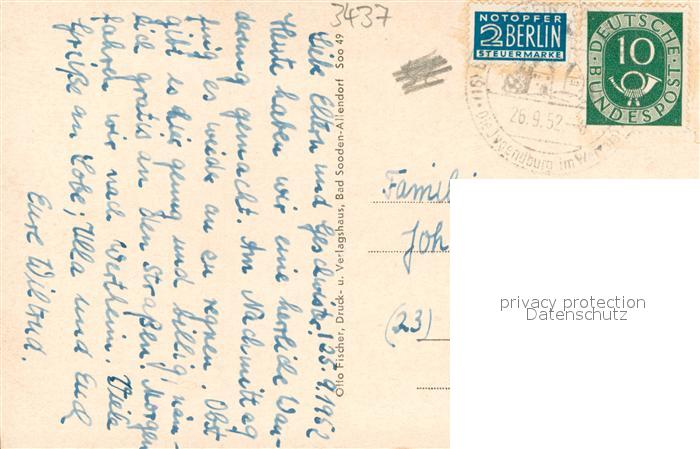 3437
NOTOPFER
2 BERLIN
STEUERMARKE
DEUTSCHE
BUNDESPOST
10
26.9.52
Die Jugendburg im Werra
Liebe Eltern und Geschwister! 25.9.1952
Heute haben wir eine herrliche Wan-
derung gemacht. Am Nachmittag
fing es wieder an zu regnen. Obst
gibt es hier genug und billig, näm-
lich gratis an den Straßen! Morgen
fahren wir nach Wertheim. Viele
Grüße an Lobe, Ulla und Euch
Eure Wiltrud.
Otto Fischer, Druck- u. Verlagshaus, Bad Sooden-Allendorf Soo 49
Famili
Joh
(23)
privacy protection
Datenschutz